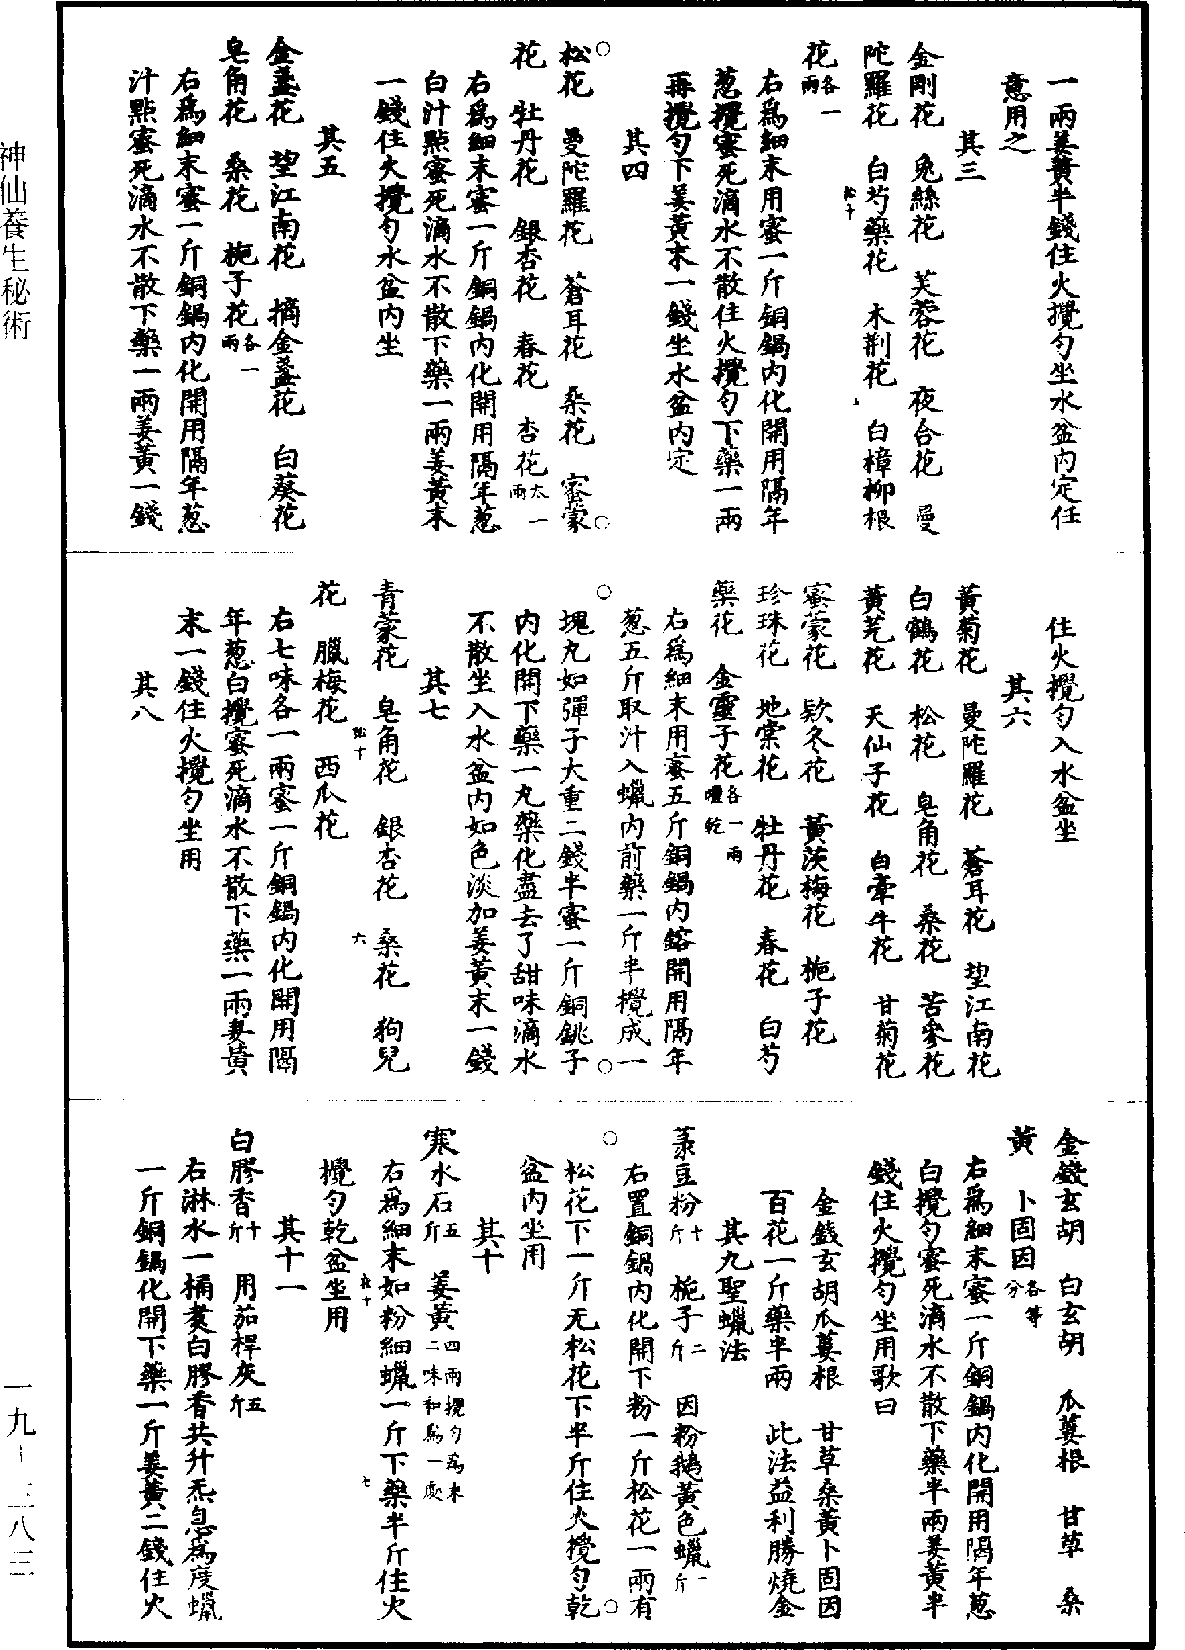 一兩姜黃半錢住火攪勻坐水盆內定任
意用之
其三
金剛花　兔絲花　芙蓉花　夜合花　曼
陀羅花　白芍藥花　木荆花　白樟柳根
花各一兩
右爲細末用蜜一斤銅鍋內化開用隔年
葱攪蜜死滴水不散住火攪勻下藥一兩
再攪勻下姜黃末一錢坐水盆內定
其四
松花　曼陀羅花　蒼耳花　桑花　蜜蒙
花　牡丹花　銀杏花　春花　杏花六一兩
右爲細末蜜一斤銅鍋內化開用隔年葱
白汁點蜜死滴水不散下藥一兩姜黃末
一錢住火攪勻水盆內坐
其五
金盞花　望江南花　摘金盞花　白葵花
皂角花　桑花　梔子花各一兩
右爲細末蜜一斤銅鍋內化開用隔年葱
汁點蜜死滴水不散下藥一兩姜黃一錢
住火攪勻入水盆坐
其六
黃菊花　曼陀羅花　蒼耳花　望江南花
白鶴花　松花　皂角花　桑花　苦參花
黃芫花　天仙子花　白牽牛花　甘菊花
蜜蒙花　欵冬花　黃茨梅花　梔子花
珍珠花　地棠花　牡丹花　春花　白芍
藥花　金靈子花各一兩曬乾
右爲細末用蜜五斤銅鍋內鎔開用隔年
葱五斤取汁入蠟內前藥一斤半攪成一
塊丸如彈子大重二錢半蜜一斤銅銚子
內化開下藥一丸藥化盡去了甜味滴水
不散坐入水盆內如色淡加姜黃末一錢
其七
青蒙花　皂角花　銀杏花　桑花　狗兒
花　臘梅花　西瓜花
右七味各一兩蜜一斤銅鍋內化開用隔
年葱白攪蜜死滴水不散下藥一兩姜黃
末一錢住火攪勻坐用
其八
金錢玄胡　白玄胡　瓜蔞根　甘草　桑
黃　卜固因各等分
右爲細末蜜一斤銅鍋內化開用隔年葱
白攪勻蜜死滴水不散下藥半兩姜黃半
錢住火攪勻坐用歌曰
金錢玄胡瓜蔞根　甘草桑黃卜固因
百花一斤藥半兩　此法益利勝燒金
其九聖蠟法
菉豆粉十斤　梔子二斤　因粉鵝黃色蠟一斤
右置銅鍋內化開下粉一斤松花一兩有
松花下一斤无松花下半斤住火攪勻乾
盆內坐用
其十
寒水石五斤　姜黃四兩攪勻爲末二味和爲一處
右爲細末如粉細蠟一斤下藥半斤住火
攪勻乾盆坐用
其十一
白膠香十斤　用茄稈灰五斤
右淋水一桶煑白膠香共升炁息爲度蠟
一斤銅鍋化開下藥一斤姜黃二錢住火
神仙養生秘術